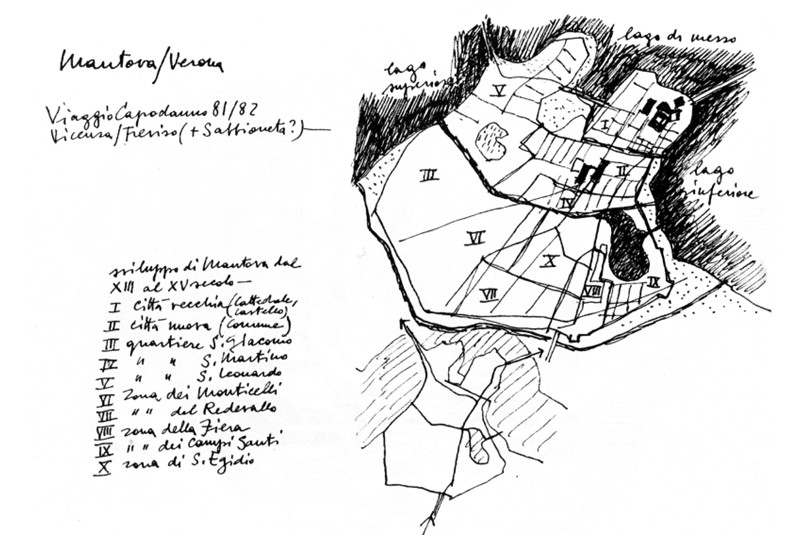 Mantova/Verona
Viaggio Capodanno 81/82
Vicenza/Treviso (+ Sabbioneta?)
lago superiore
lago di mezzo
lago inferiore
V
I
III
II
IV
VI
X
VII
VIII
IX
sviluppo di Mantova dal
XIII al XV secolo
I città vecchia (Cattedrale,
castello)
II città nuova (Comune)
III quartiere S. Giacomo
IV " " S. Martino
V " " S. Leonardo
VI zona dei Monticelli
VII " " del Redevallo
VIII zona della Fiera
IX " " dei Campi Santi
X zona di S. Egidio